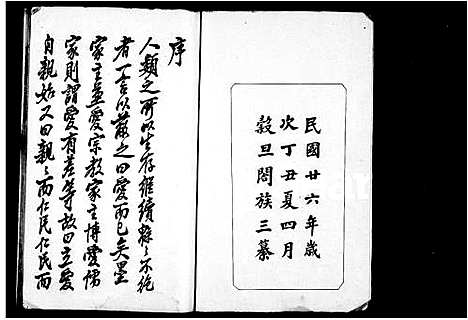 民國廿六年歲
次丁丑夏四月
穀旦閤族三纂
序
人類之所以生存繼續緜緜不絕
者一言以蔽之曰愛而已矣墨
家主兼愛宗教家主博愛儒
家則謂愛有差等故曰立愛
自親始又曰親親而仁民仁民而